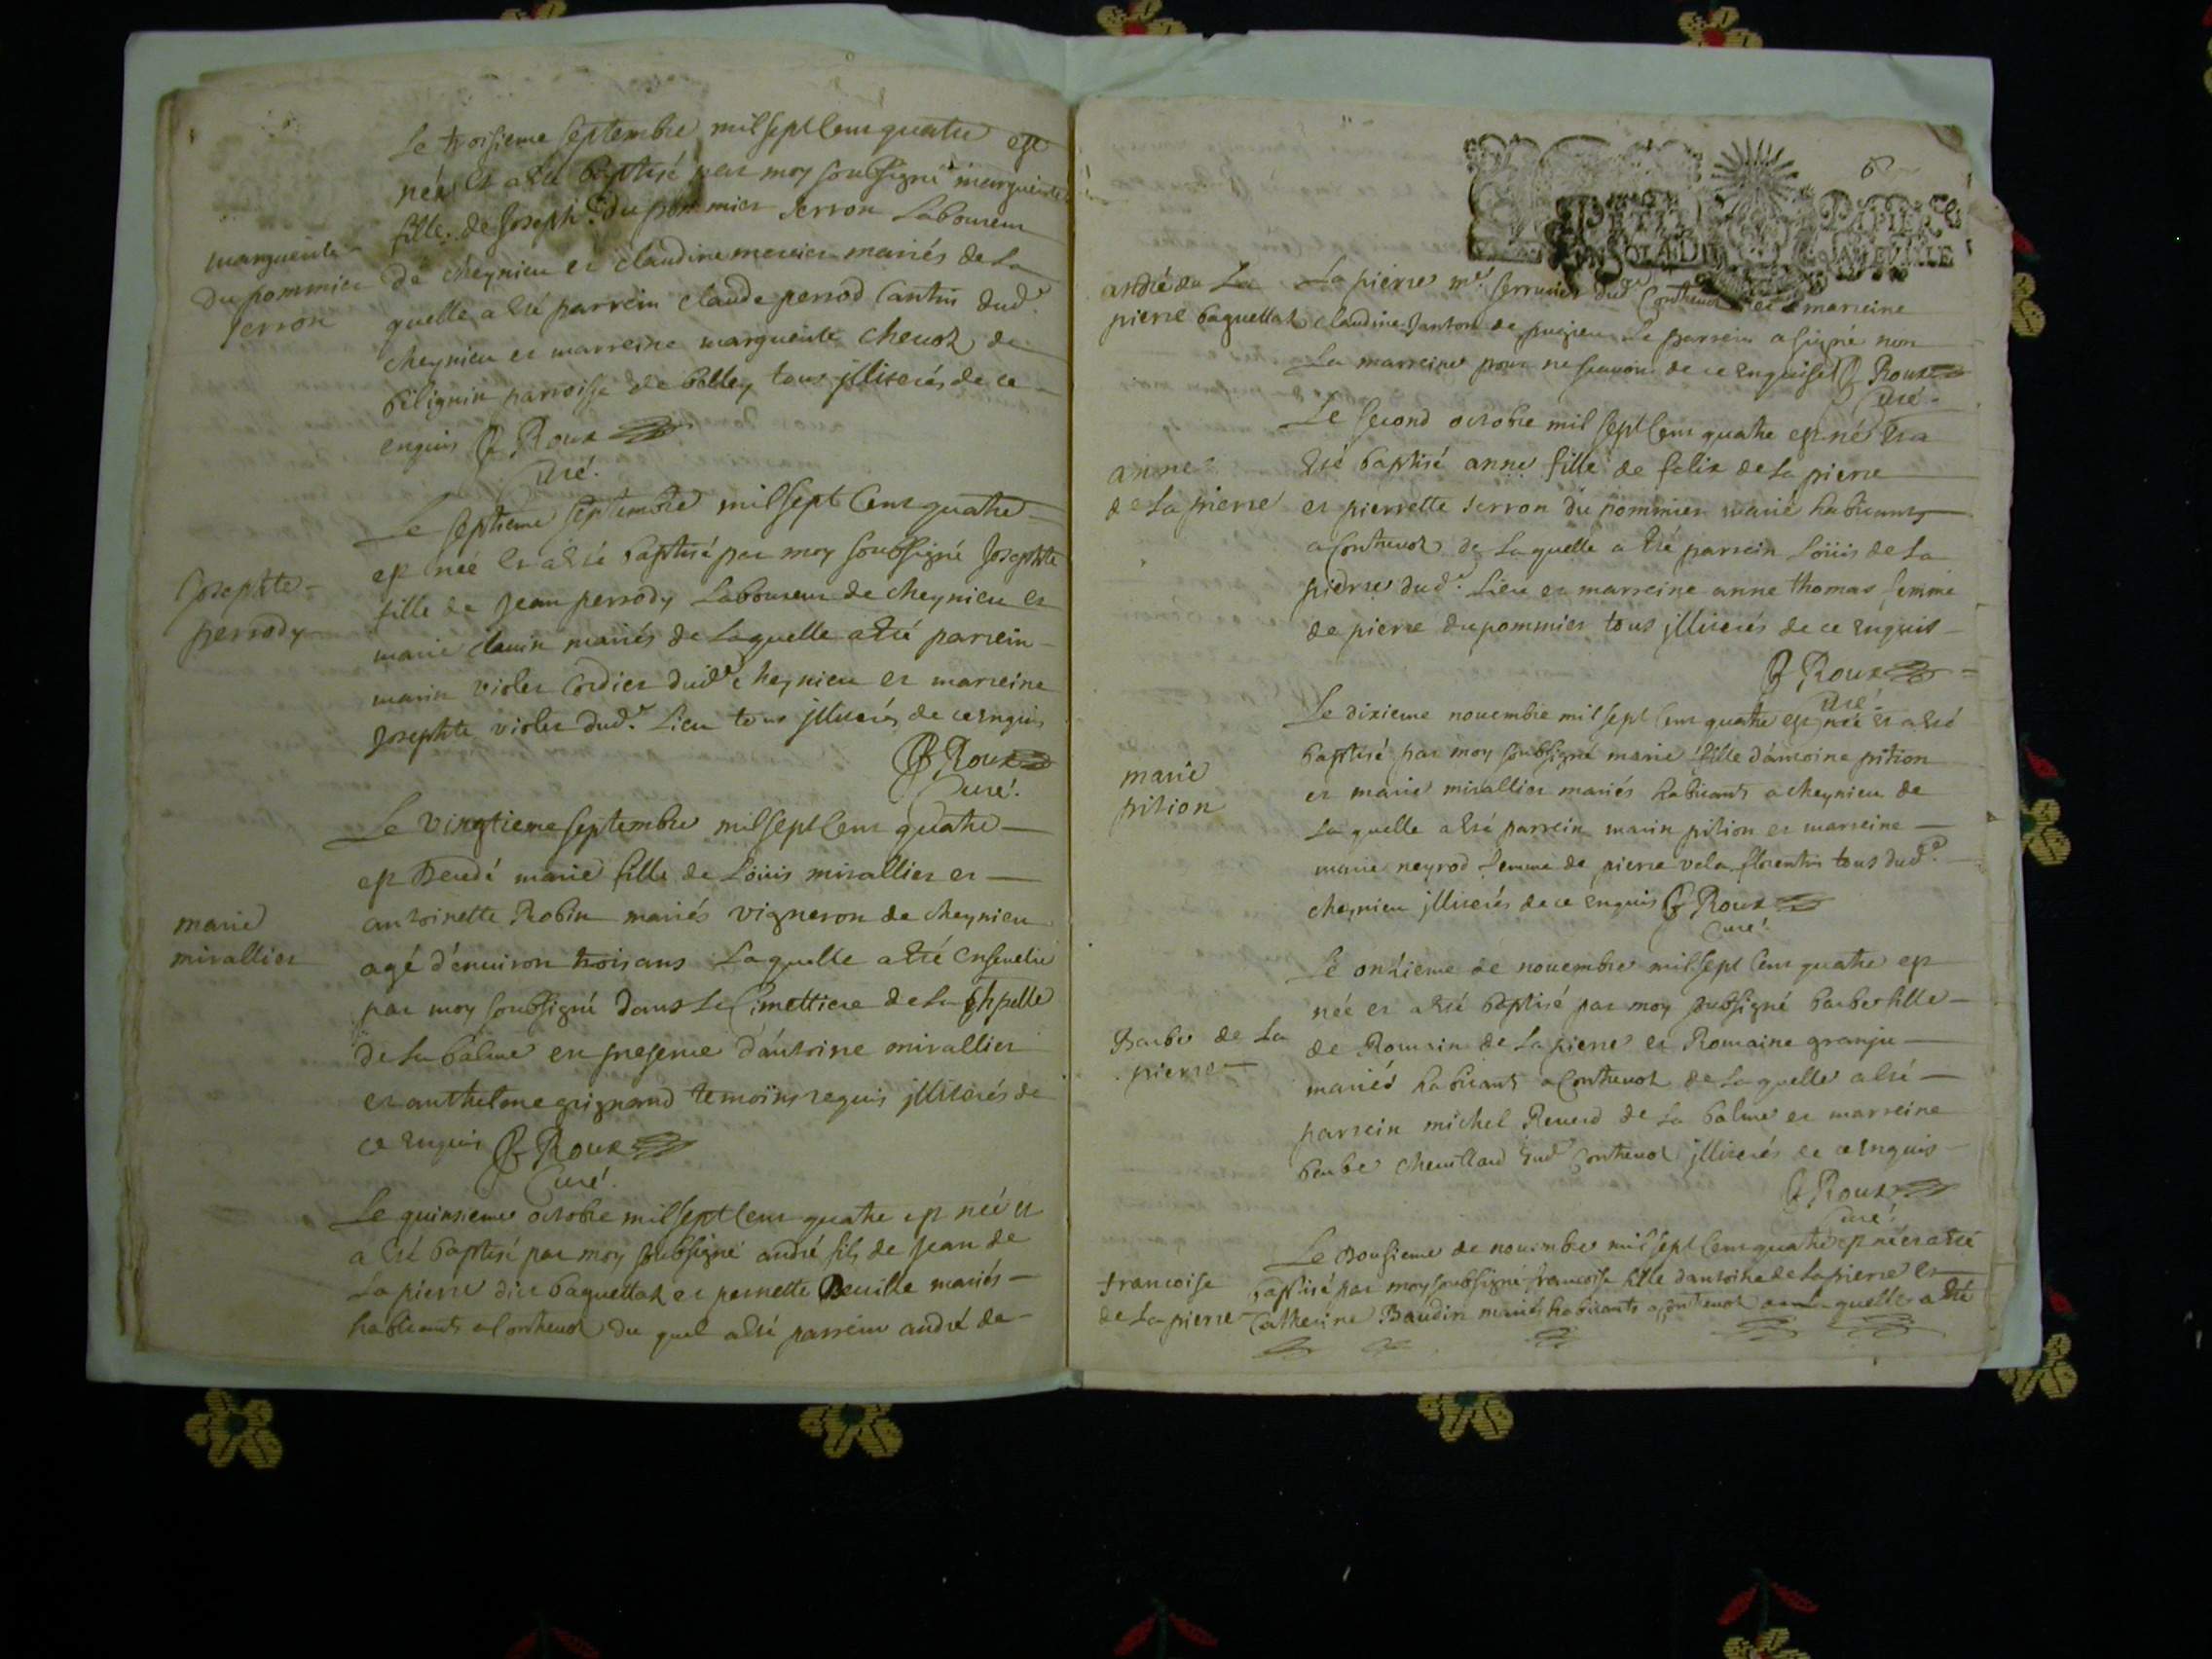 Le troisieme septembre mil sept Cens quatre est
née Et a Eté baptisé par moy soubsigné marguerite
fille de Joseph du pommier serron Laboureur
marguerite
du pommier
serron
de cheynieu et claudine mercier mariés de La
quelle a Eté parrein claude perrod Cantin dud.e
cheynieu et marreine marguerite chenoz de
billignin parroisse de belley tous jlliterés de ce
enquis Roux
Curé.
Le septieme septembre mil sept Cens quatre
est née Et a Eté baptisé par moy soubsigné Josephte
Josephte
perrody
fille de Jean perrody Laboureur de cheynieu et
marie clauin mariés de Laquelle a Eté parrein
marin violet Cordier dud.e cheynieu et marreine
Josephte violet dud.e Lieu tous jlliterés de ce Enquis
Roux
Curé.
Le vingtieme septembre mil sept Cens quatre
est decedé marie fille de Löuis mirallier et
marie
mirallier
antoinette Robin mariés vigneron de cheynieu
agé d'enuiron trois ans Laquelle a Eté enseuelie
par moy soubsigné dans Le Cimettiere de La chpelle
de La balme en presence d'antoine mirallier
et anthelme grignand temoïns requis jlliterés de
ce Enquis Roux
Curé.
Le quinsieme octobre mil sept Cens quatre est née et
a Eté baptisé par moy soubsigné andré fils de Jean de
La pierre dit baquettaz et pernette mariés
habitants a Contreuoz du quel a Eté parrein andré de
PETIT PAPIER
UN SOL LA DEMIE
andré de La
pierre baquettaz
La pierre m.e serrurier dud.e Contreuoz et marreine
claudine Janton de pugieu Le parrein a signé non
La marreine pour ne scauoir de ce Enquise Roux
Curé.
Le second octobre mil sept Cens quatre est né Et a
anne
de La pierre
Eté baptisé anne fille de felix de La pierre
et pierrette serron du pommier marié habitants
a Contreuoz de Laquelle a Eté parrein Löuis de La
pierre dud.e Lieu et marreine anne thomas femme
de pierre du pommier tous jlliterés de ce Enquis
Roux
Curé.
Le dixieme nouembre mil sept Cens quatre est née Et a Eté
marie
pition
baptisé par moy soubsigné marie fille d'antoine pition
et marie mirallier mariés habitants a cheynieu de
La quelle a Eté parrein marin pition et marreine
marie neyrod femme de pierre vela florentin tous dud.e
cheynieu jlliterés de ce Enquis Roux
Curé.
Le onzieme de nouembre mil sept Cens quatre est
née et a Eté baptisé par moy soubsigné barbe fille
Barbe de La
pierre
de Romain de La pierre et Romaine granju
mariés habitants a Contreuoz de Laquelle a Eté
parrein michel Reuerd de La balme et marreine
barbe cheuillard dud.e Contreuoz jlliterés de ce Enquis
Roux
Curé.
Le dousieme de nouembre mil sept Cens quatre est née et a Eté
francoise
de La pierre
baptisé par moy soubsigné francoise fille d'antoine de La pierre et
Catherine Baudin mariés habitants a Contreuoz de Laquelle a Eté